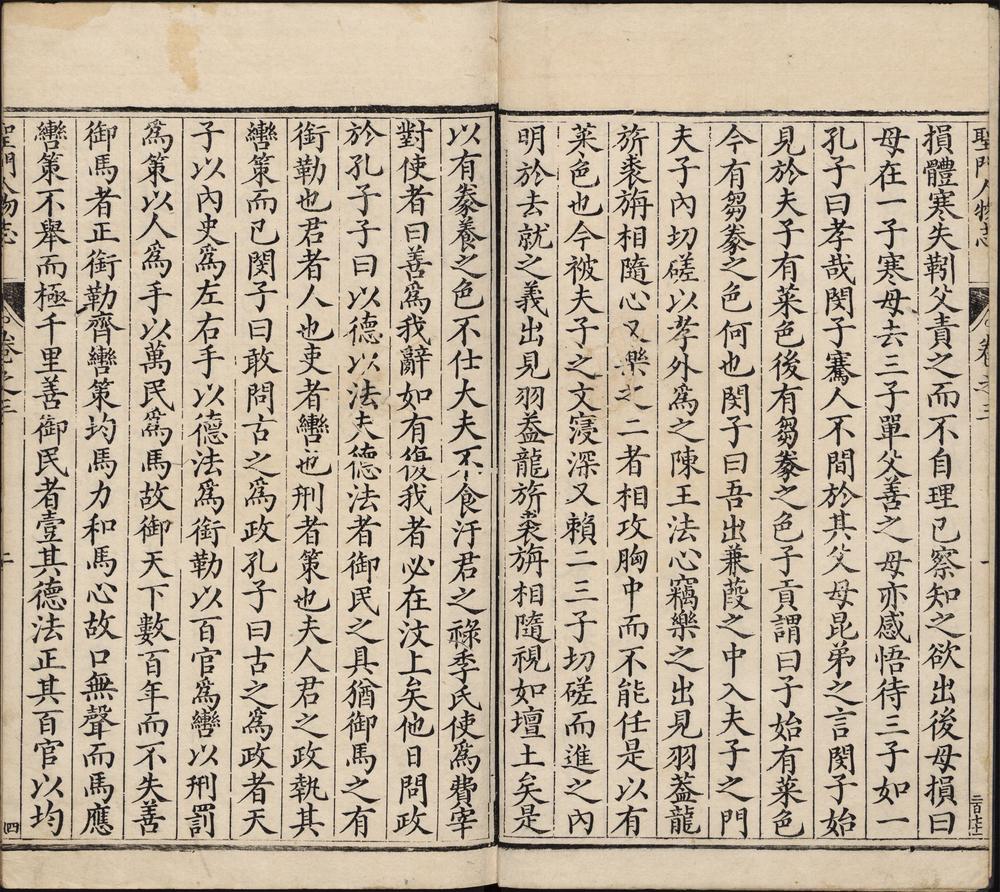 聖門人物志 卷之三 一 三百七十
損體寒失靷父責之而不自理已察知之欲出後母損曰
母在一子寒母去三子單父善之母亦感悟待三子如一
孔子曰孝哉閔子騫人不間於其父母昆弟之言閔子始
見於夫子有菜色後有芻豢之色子貢謂曰子始有菜色
今有芻豢之色何也閔子曰吾出蒹葭之中入夫子之門
夫子內切磋以孝外爲之陳王法心竊樂之出見羽葢龍
旂裘旃相隨心又樂之二者相攻胸中而不能任是以有
菜色也今被夫子之文寖深又賴二三子切磋而進之內
明於去就之義出見羽葢龍旂裘旃相隨視如壇土矣是
以有豢養之色不仕大夫不食汙君之祿季氏使爲費宰
對使者曰善爲我辭如有復我者必在汶上矣他日問政
於孔子子曰以德以法夫德法者御民之具猶御馬之有
銜勒也君者人也吏者轡也刑者策也夫人君之政執其
轡策而已閔子曰敢問古之爲政孔子曰古之爲政者天
子以內史爲左右手以德法爲銜勒以百官爲轡以刑罰
爲策以人爲手以萬民爲馬故御天下數百年而不失善
御馬者正銜勒齊轡策均馬力和馬心故口無聲而馬應
轡策不舉而極千里善御民者壹其德法正其百官以均
聖門人物志 卷之三 二 四